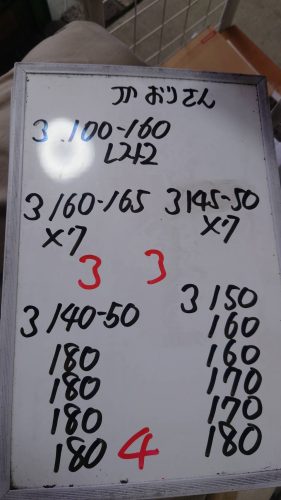 JPおりさん
3 100-160
L2H2
3 160-165
×7
3 145-50
×7
3 3
3 140-50
180
180
180
180 4
3 150
160
160
170
170
180